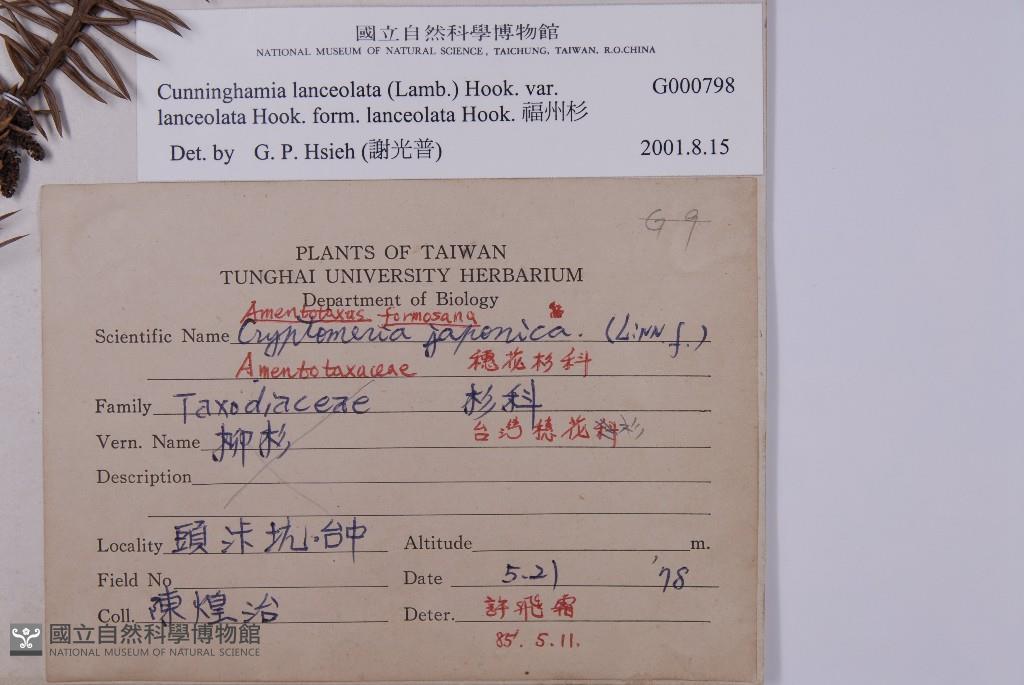 國立自然科學博物館
NATIONAL MUSEUM OF NATURAL SCIENCE, TAICHUNG, TAIWAN, R.O.CHINA
Cunninghamia lanceolata (Lamb.) Hook. var. G000798
lanceolata Hook. form. lanceolata Hook. 福州杉
Det. by G. P. Hsieh (謝光普) 2001.8.15
G 9
PLANTS OF TAIWAN
TUNGHAI UNIVERSITY HERBARIUM
Department of Biology
Amentotaxus formosana
Scientific Name Cryptomeria japonica. (Linn f.)
Amentotaxaceae 穗花杉科
Family Taxodiaceae 杉科
Vern. Name 柳杉 台灣穗花杉
Description
Locality 頭汴坑.台中 Altitude m.
Field No Date 5-21 '78
Coll. 陳煌治 Deter. 許飛霜
85'. 5.11.
國立自然科學博物館
NATIONAL MUSEUM OF NATURAL SCIENCE